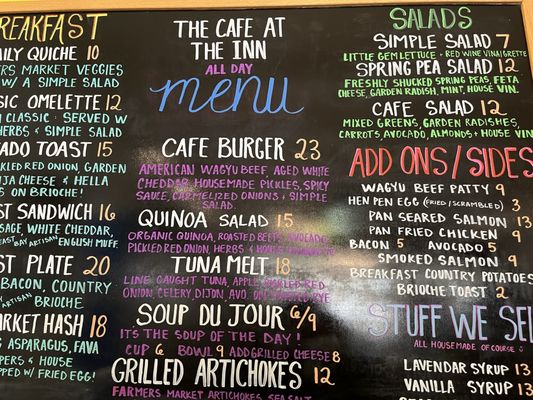 BREAKFAST
DAILY QUICHE 10
FARMERS MARKET VEGGIES
W/ A SIMPLE SALAD
CLASSIC OMELETTE 12
CLASSIC · SERVED W
HERBS & SIMPLE SALAD
AVOCADO TOAST 15
PICKLED RED ONION, GARDEN
& HELLA
ON BRIOCHE!
BREAKFAST SANDWICH 16
SAUSAGE, WHITE CHEDDAR,
EAST BAY ARTISAN ENGLISH MUFF.
BREAKFAST PLATE 20
BACON, COUNTRY
ARTISAN BRIOCHE
MARKET HASH 18
ASPARAGUS, FAVA
PEPPERS & HOUSE
TOPPED W/ FRIED EGG!
THE CAFE AT
THE INN
ALL DAY
menu
CAFE BURGER 23
AMERICAN WAGYU BEEF, AGED WHITE
CHEDDAR, HOUSEMADE PICKLES, SPICY
SAUCE, CARMELIZED ONIONS & SIMPLE
SALAD.
QUINOA SALAD 15
ORGANIC QUINOA, ROASTED BEETS, AVOCADO,
PICKLED RED ONION, HERBS & HOUSE
TUNA MELT 18
LINE CAUGHT TUNA, APPLE, PICKLED RED
ONION, CELERY, DIJON, AVO. RYE
SOUP DU JOUR 6/9
ITS THE SOUP OF THE DAY!
CUP 6 BOWL 9 ADD GRILLED CHEESE 8
GRILLED ARTICHOKES 12
FARMERS MARKET ARTICHOKES, SEA SALT
SALADS
SIMPLE SALAD 7
LITTLE GEM LETTUCE & RED WINE VINAIGRETTE
SPRING PEA SALAD 12
FRESHLY SHUCKED SPRING PEAS, FETA
CHEESE, GARDEN RADISH, MINT, HOUSE VIN.
CAFE SALAD 12
MIXED GREENS, GARDEN RADISHES,
CARROTS, AVOCADO, ALMONDS & HOUSE VIN.
ADD ONS/SIDES
WAGYU BEEF PATTY 9
HEN PEN EGG (FRIED/SCRAMBLED) 3
PAN SEARED SALMON 13
PAN FRIED CHICKEN 9
BACON 5 AVOCADO 5
SMOKED SALMON 9
BREAKFAST COUNTRY POTATOES
BRIOCHE TOAST 2
STUFF WE SELL
ALL HOUSEMADE OF COURSE
LAVENDAR SYRUP 13
VANILLA SYRUP 13